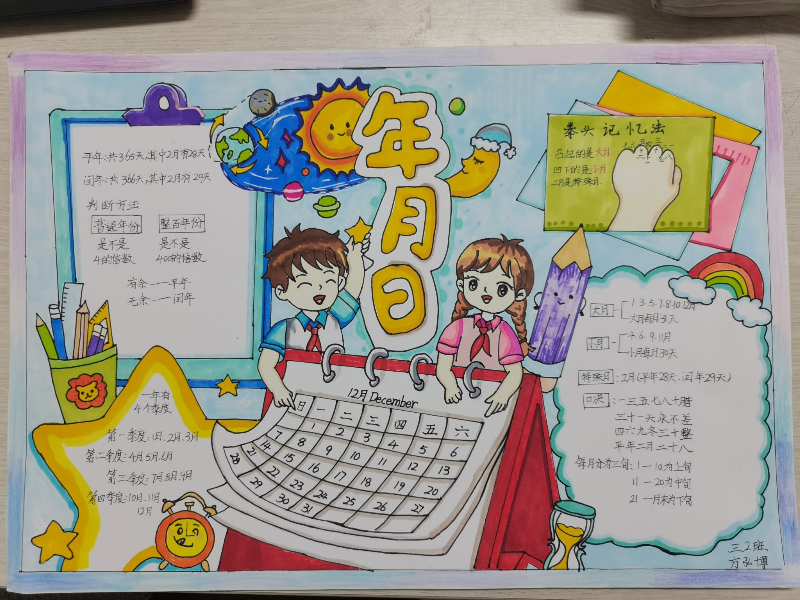 年月日
平年:共365天,其中2月有28天
闰年:共366天,其中2月有29天
判断方法
普通年份 整百年份
是不是 是不是
4的倍数 400的倍数
有余——平年
无余——闰年
一年有
4个季度
第一季度:1月.2月.3月
第二季度:4月.5月.6月
第三季度:7月.8月.9月
第四季度:10月.11月
12月
12月 December
日 一 二 三 四 五 六
1 2 3 4 5 6
7 8 9 10 11 12 13
14 15 16 17 18 19 20
21 22 23 24 25 26 27
28 29 30 31
拳头记忆法
凸起的是大月
凹下的是小月
二月是特殊月.
大月 1.3.5.7.8.10.12月
大月每月31天
小月 4.6.9.11月
小月每月30天
特殊月:2月(平年28天.闰年29天)
口诀:一三五七八十腊
三十一天永不差
四六九冬三十整
平年二月二十八
每月分为三旬:1—10为上旬
11—20为中旬
21—月末为下旬
三2班
方弘博